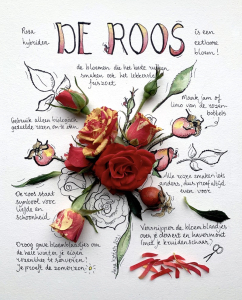 DE ROOS
Rosa
hybriden
Is een
eetbare
bloem!
de bloemen die het beste ruiken,
smaken ook het lekkerste
Gebruik alleen biologisch
geteelde rozen om te eten.
Maak jam of
limo van de rozen-
bottels
Alle rozen smaken iets
anders, dus proef altijd
even voor.
De roos staat
symbool voor
liefde en
schoonheid.
Droog gave bloemblaadjes om
de hele winter je eigen
rozenthee te serveren!
Je proeft de zomerzon
Versnipper de bloemblaadjes
over je dessert en havermout
(met je kruidenschaar)